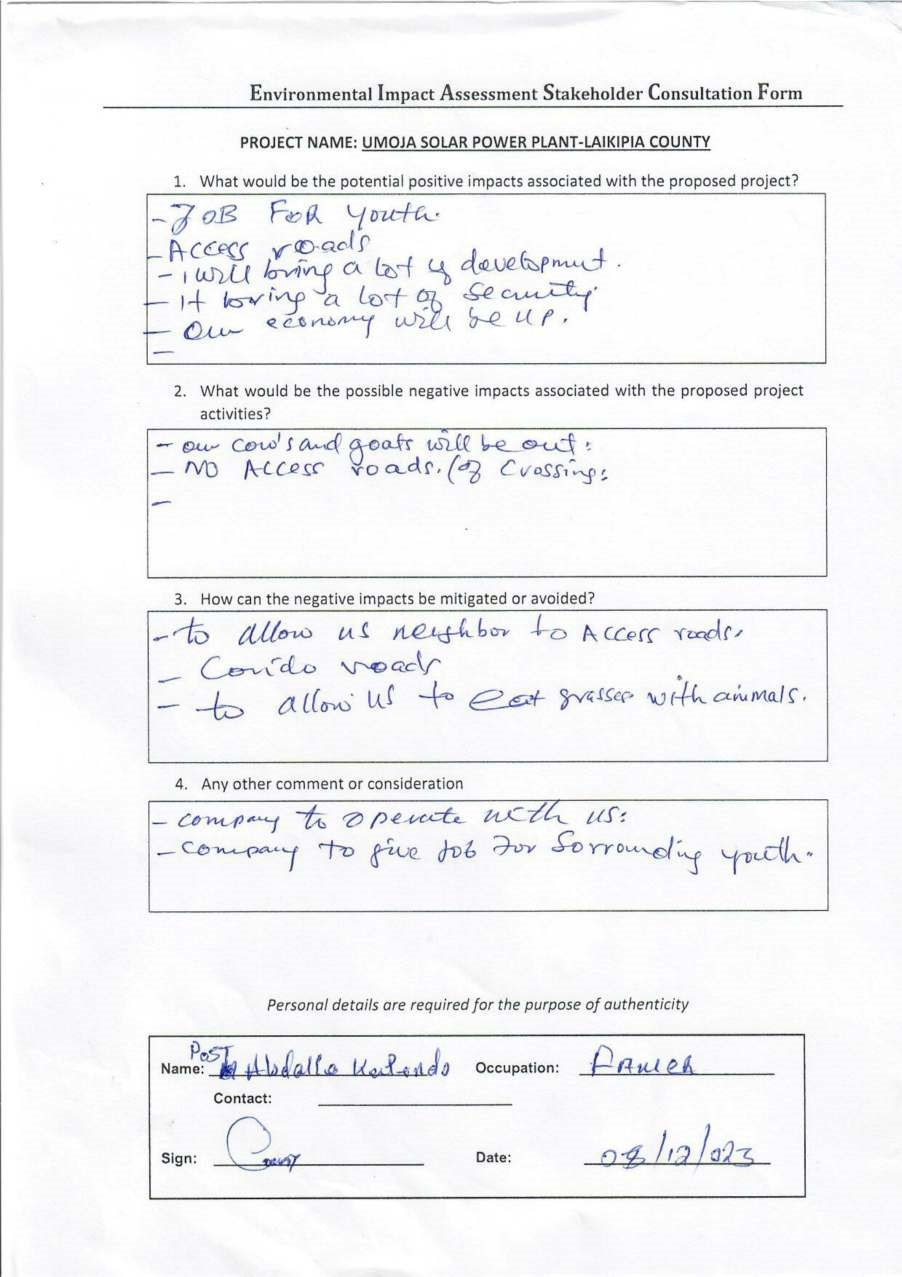 Environmental Impact Assessment Stakeholder Consultation Form
PROJECT NAME: UMOJA SOLAR POWER PLANT-LAIKIPIA COUNTY
1. What would be the potential positive impacts associated with the proposed project?
- JOB FOR youth.
- Access roads
- i will bring a lot of development.
- It bring a lot of security.
- Our economy will be up.
-
2. What would be the possible negative impacts associated with the proposed project
activities?
- our cow's and goats will be out:
- NO Access roads. (of Crossing:
-
3. How can the negative impacts be mitigated or avoided?
- to allow us neighbor to Access roads.
- Corido roads
- to allow us to eat grasses with animals.
4. Any other comment or consideration
- company to operate with us:
- company to give Job For Sorrounding youth.
Personal details are required for the purpose of authenticity
Post
Name: Abdalla Occupation:
Contact:
Sign: Date: 08/12/023